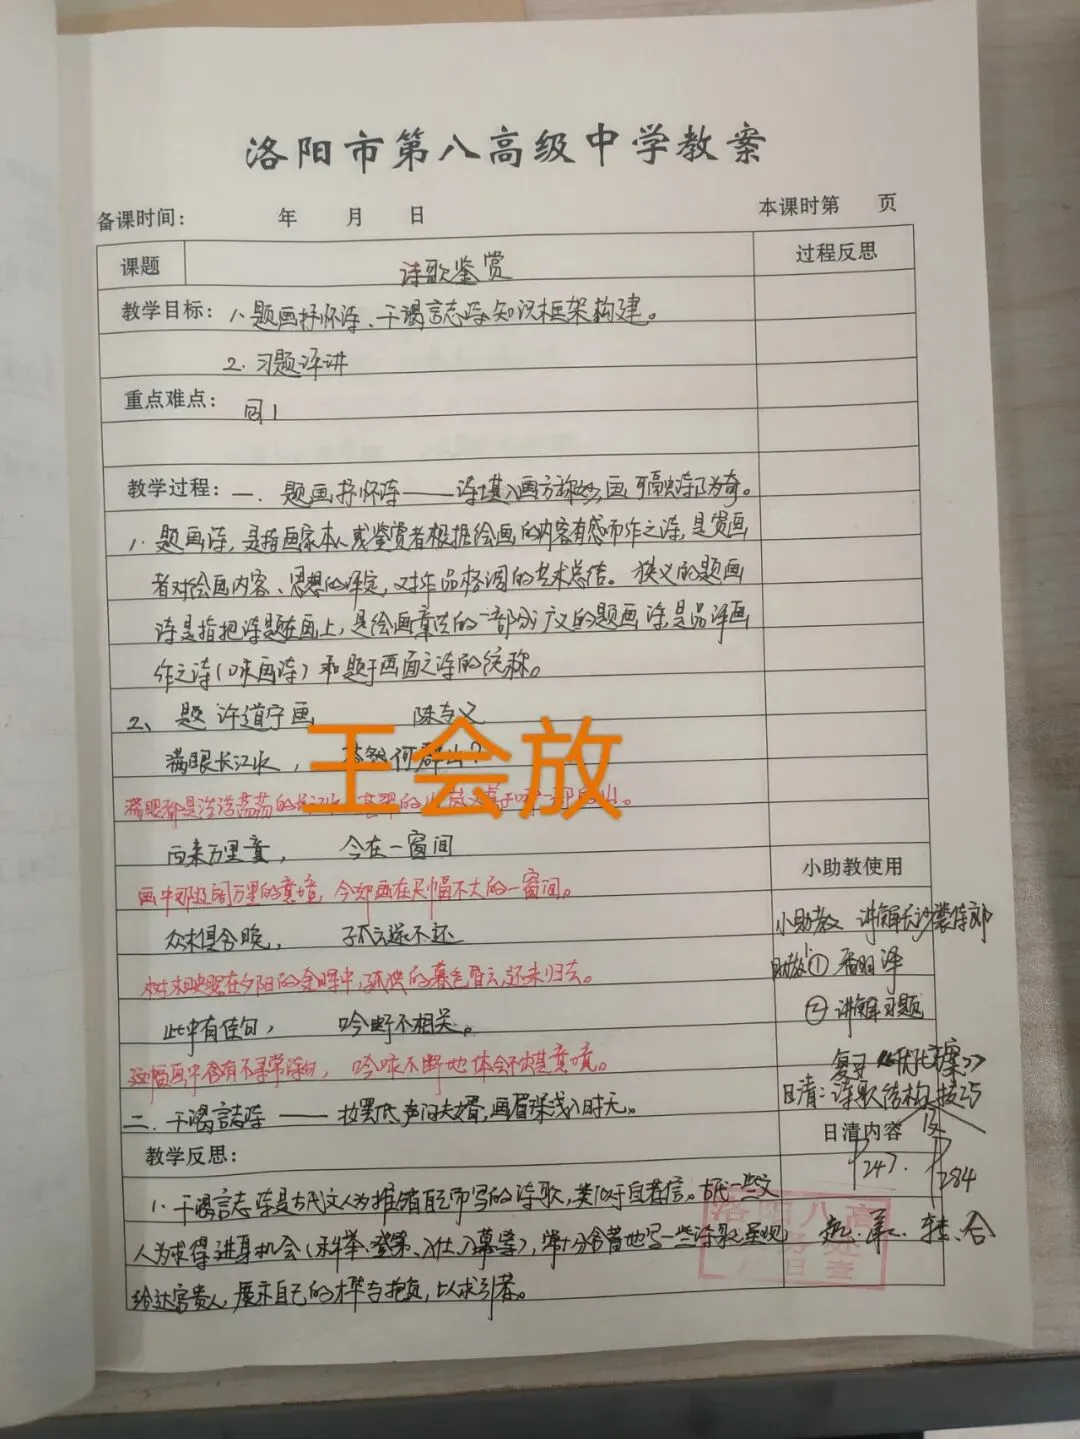 洛阳市第八高级中学教案
备课时间: 年 月 日 本课时第 页
课题 诗歌鉴赏 过程反思
教学目标: 1、题画抒怀诗、干谒言志诗知识框架构建。
2. 习题评讲
重点难点: 同1
教学过程: 一. 题画抒怀诗——诗堪入画方称妙,画可融诗乃为奇。
1. 题画诗,是指画家本人或鉴赏者根据绘画的内容有感而作之诗,是赏画
者对绘画内容、思想的评定,对作品格调的艺术总结。狭义的题画
诗是指把诗题在画上,是绘画章法的一部分,广义的题画诗是品评画
作之诗(咏画诗)和题于画面之诗的统称。
2、题许道宁画 陈与义
满眼长江水, 何郡山?
满眼都是浩浩荡荡的长江水
王会放
向来万里意, 今在一窗间
画中那辽阔万里的意境,今却画在尺幅不大的一窗间。
众木俱含晚, 孤云遂不还
树木映照在夕阳的余晖中,孤独的暮色昏云,还未归去。
此中有佳句, 吟断不相关。
这幅画中含有不寻常诗句, 吟咏不断地体会不出其意境。
二. 干谒言志诗——妆罢低声问夫婿,画眉深浅入时无。
教学反思:
1. 干谒言志诗是古代文人为推销自己而写的诗歌,类似于自荐信。古代一些文
人为求得进身机会(科举、登第、入仕、入幕等),常十分含蓄地写一些诗歌,呈现
给达官贵人,展示自己的才华与抱负,以求引荐。
小助教使用
小助教 讲解长沙裴侍郎
助教① 翟羽泽
② 讲解习题
复习《优化方案》
日清: 诗歌结构技巧
日清内容
P247. P284
洛阳八高
日查